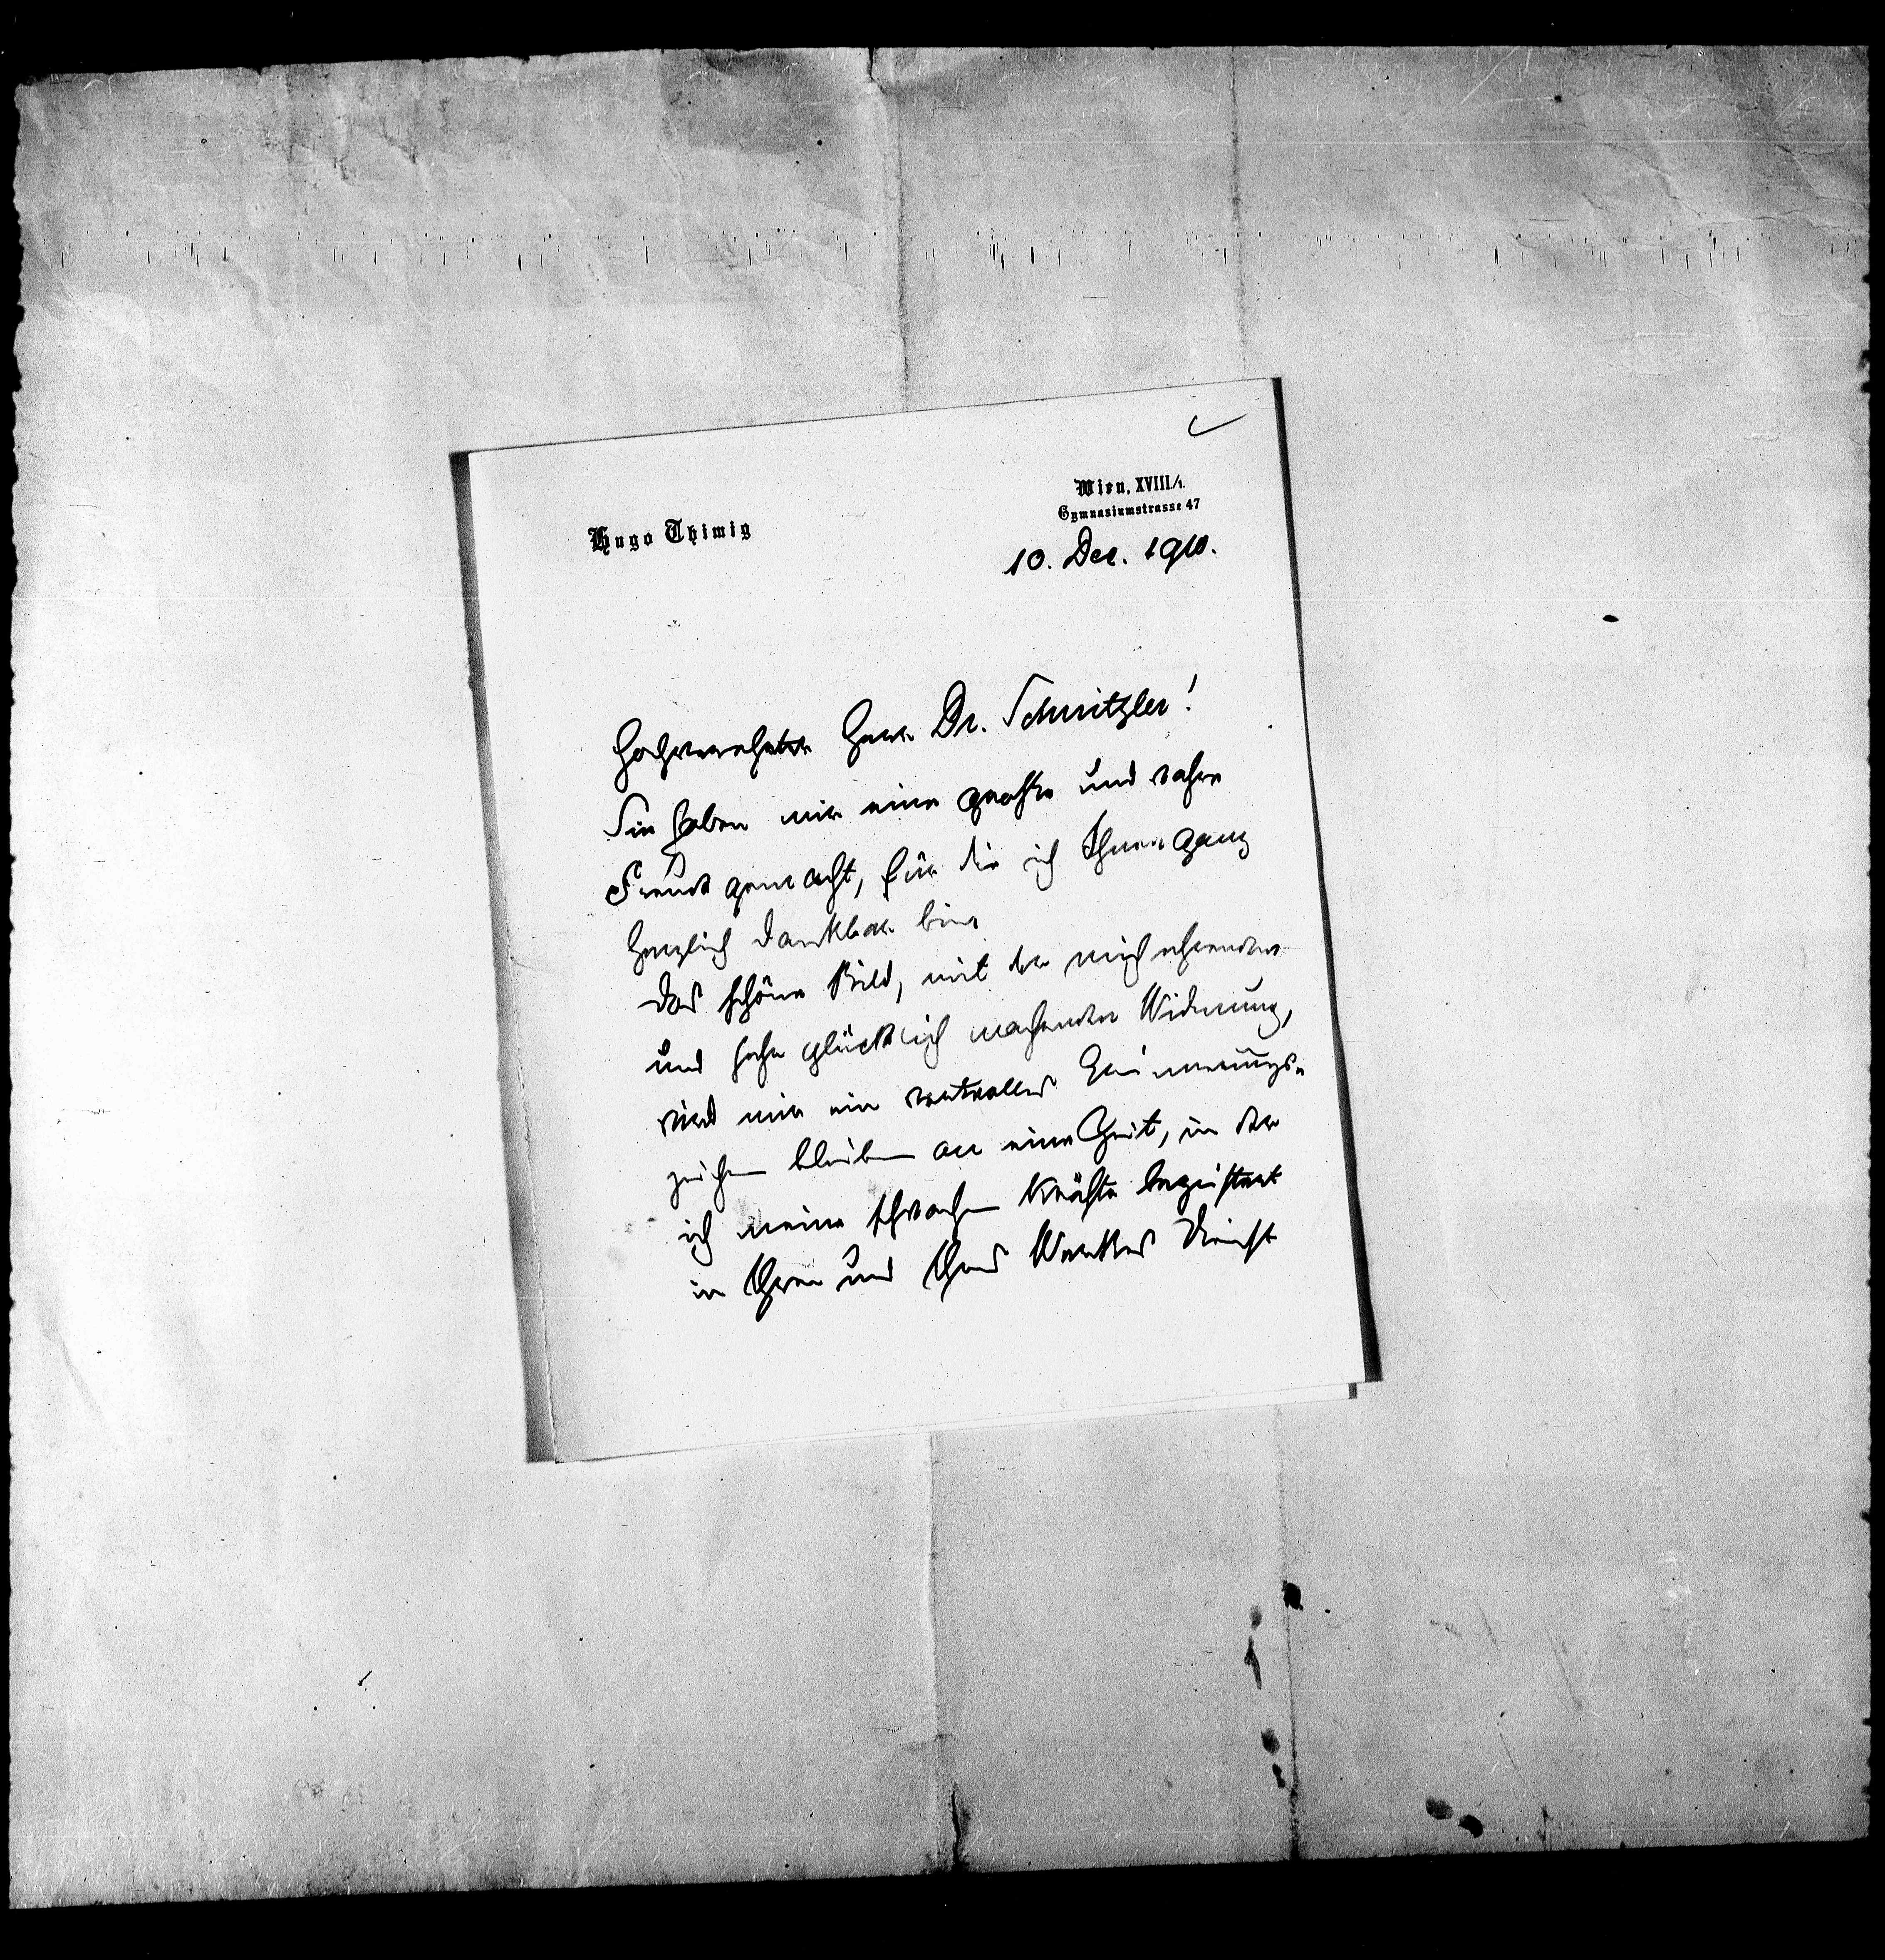 Hugo Thimig
Wien, XVIII./1.
Gymnasiumstrasse 47
10. Dec. 1910.
Hochverehrter Herr Dr. Schnitzler!
Sie haben mir eine große und wahre
Freude gemacht, für die ich Ihnen ganz
herzlich dankbar bin
Das schöne Bild, mit der mich ehrenden
und sehr glücklich machenden Widmung,
wird mir ein wertvolles Erinnerungs-
zeichen bleiben an eine Zeit, in der
ich meine schwachen Kräfte begeistert
in Ihren und Ihres Werkes Dienst